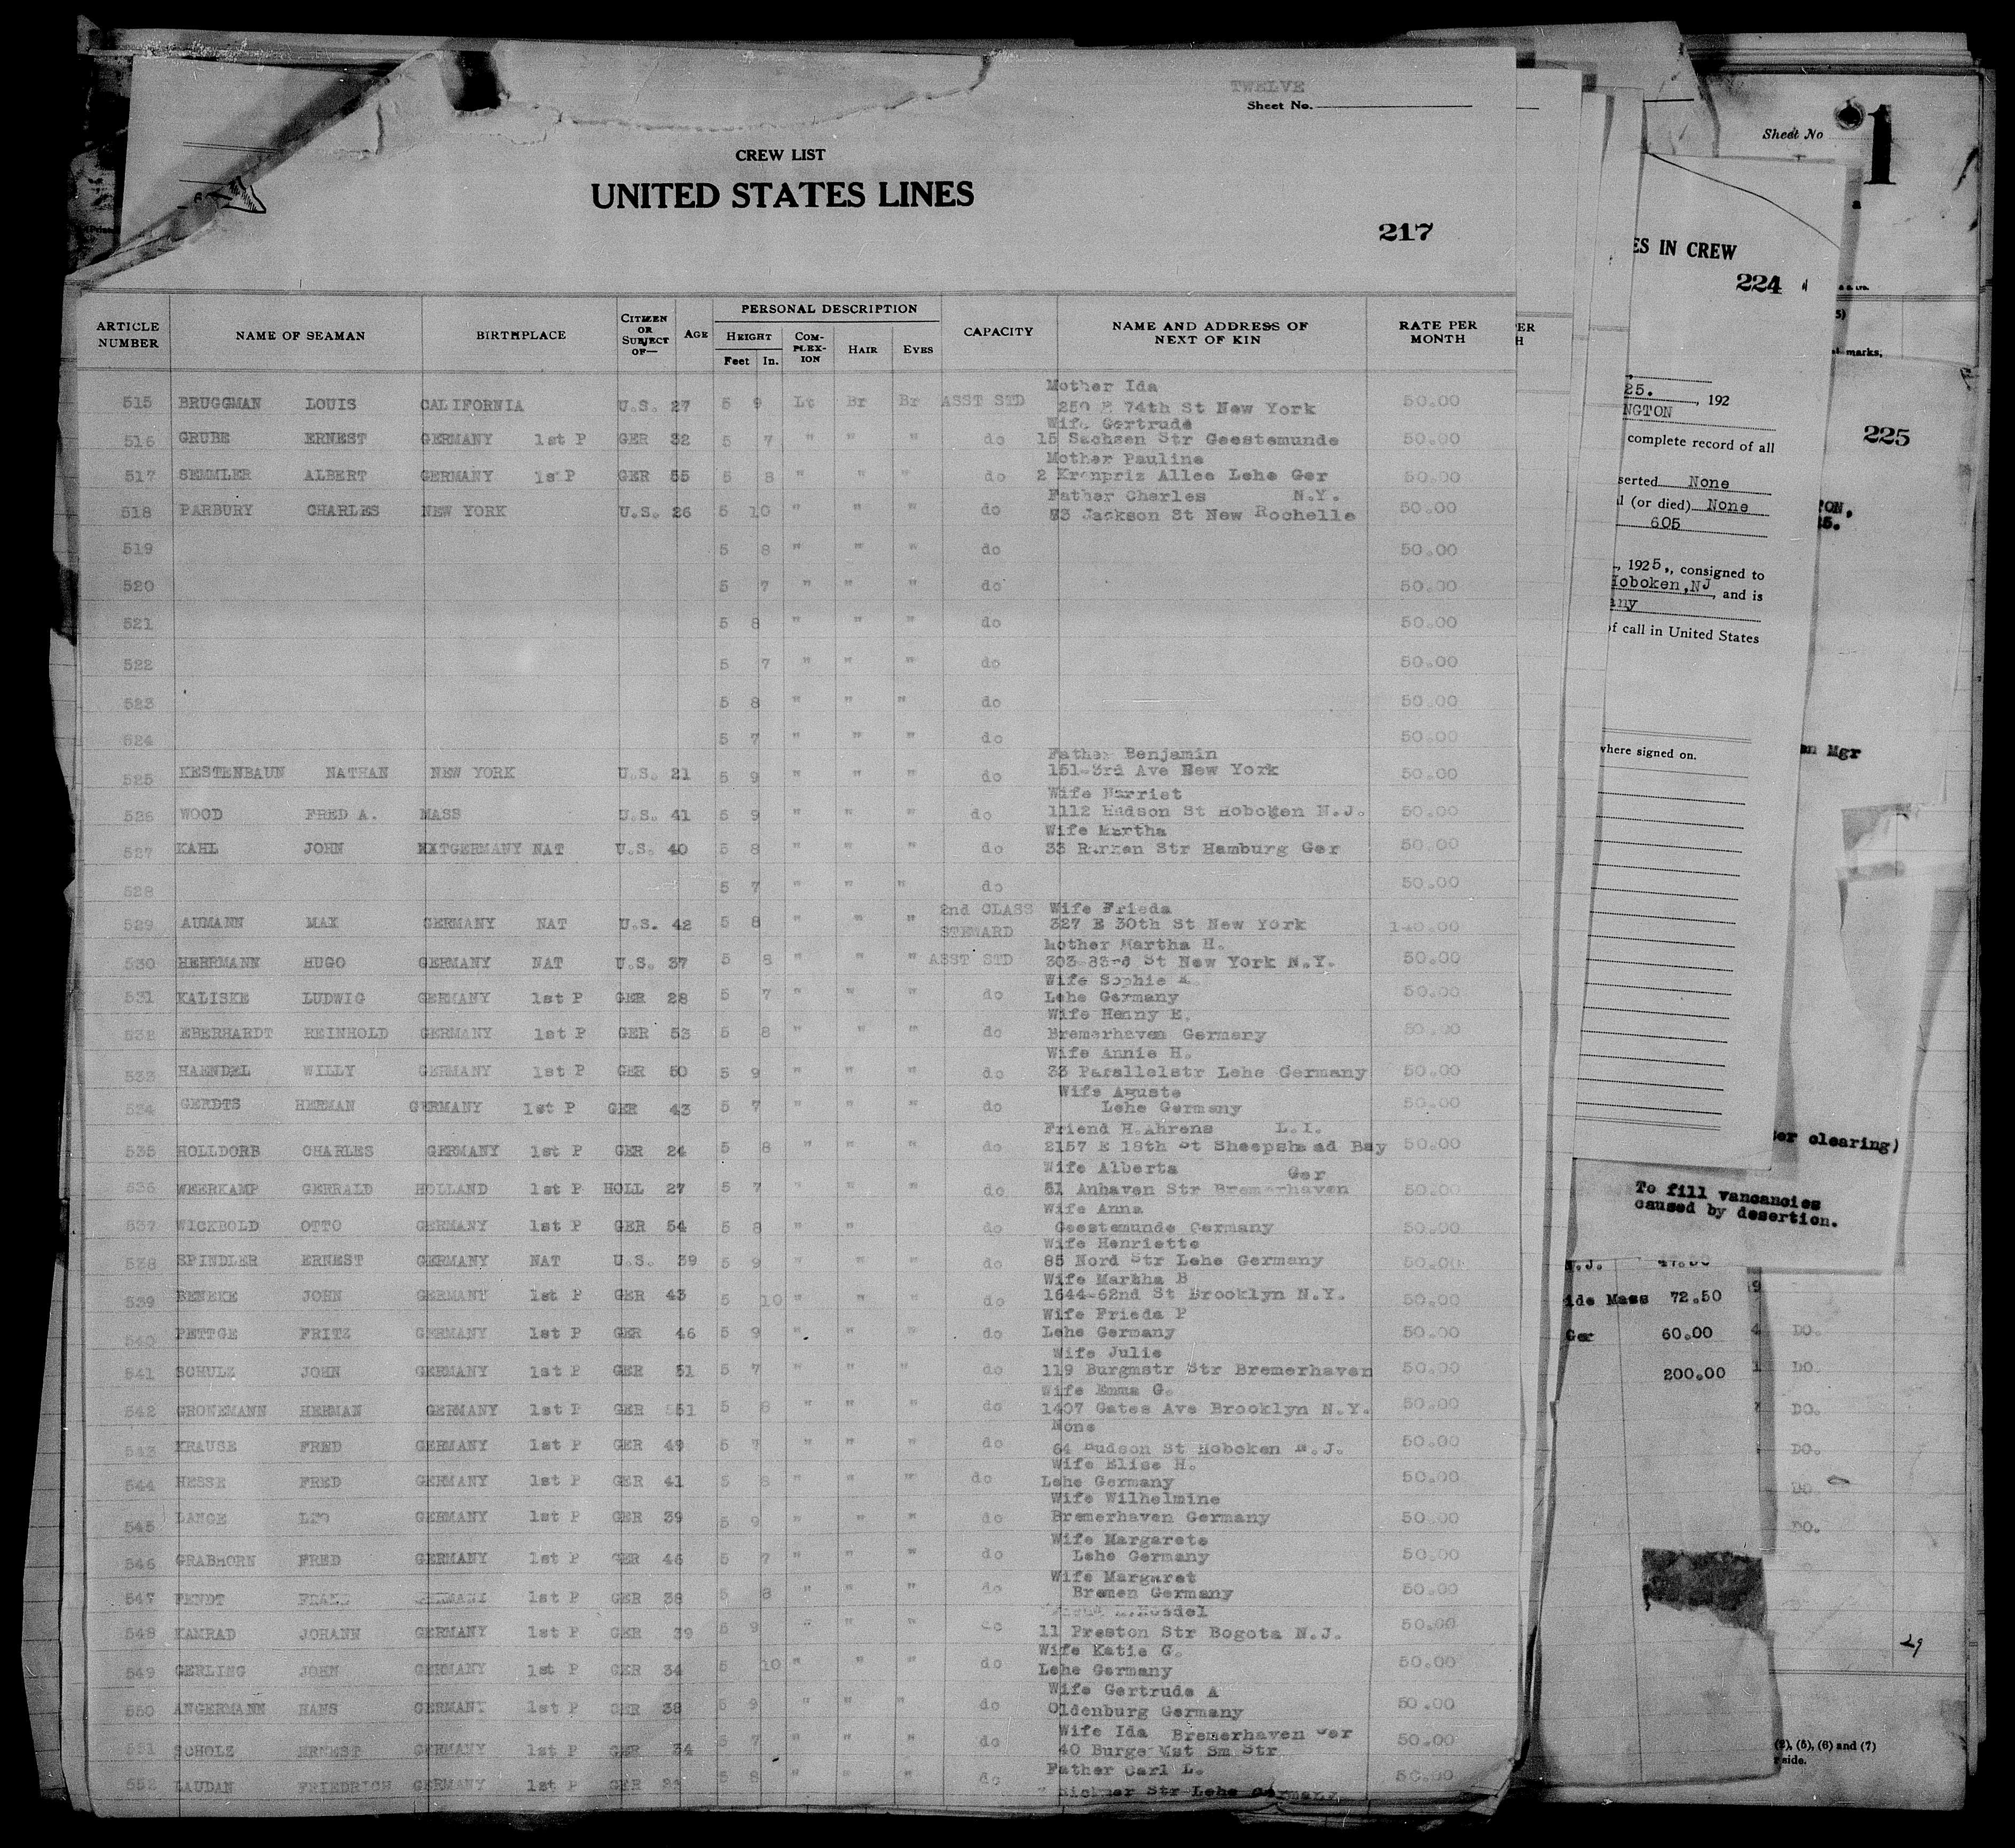 TWELVE
Sheet No.
CREW LIST
UNITED STATES LINES
217
ARTICLE NUMBER NAME OF SEAMAN BIRTHPLACE CITIZEN OR SUBJECT OF— AGE PERSONAL DESCRIPTION CAPACITY NAME AND ADDRESS OF NEXT OF KIN RATE PER MONTH
HEIGHT COMPLEXION HAIR EYES
Feet In.
Mother Ida
515 BRUGGMAN LOUIS CALIFORNIA U.S. 27 5 9 Lt Br Br ASST STD 250 E 74th St New York 50.00
Wife Gertrude
516 GRUBE ERNEST GERMANY 1st P GER 32 5 7 " " " do 15 Sachsen Str Geestemunde 50.00
Mother Pauline
517 SEMMLER ALBERT GERMANY 1st P GER 55 5 8 " " " do 2 Kronpriz Allee Lehe Ger 50.00
Father Charles N.Y.
518 PARBURY CHARLES NEW YORK U.S. 26 5 10 " " " do Jackson St New Rochelle 50.00
519 5 8 " " " do 50.00
520 5 7 " " " do 50.00
521 5 8 " " " do 50.00
522 5 7 " " " do 50.00
523 5 8 " " " do 50.00
524 5 7 " " " do 50.00
Father Benjamin
525 KESTENBAUN NATHAN NEW YORK U.S. 21 5 9 " " " do 151-3rd Ave New York 50.00
Wife Harriet
526 WOOD FRED A. MASS U.S. 41 5 9 " " " do 1112 Hudson St Hoboken N.J. 50.00
Wife Martha
527 KAHL JOHN GERMANY NAT U.S. 40 5 8 " " " do 33 Str Hamburg Ger 50.00
528 5 7 " " " do 50.00
2nd CLASS Wife Frieda
529 AUMANN MAX GERMANY NAT U.S. 42 5 8 " " " STEWARD 327 E 30th St New York 140.00
Mother Martha H.
530 HERRMANN HUGO GERMANY NAT U.S. 37 5 8 " " " ASST STD 303-83rd St New York N.Y. 50.00
Wife Sophie K.
531 KALISKE LUDWIG GERMANY 1st P GER 28 5 7 " " " do Lehe Germany 50.00
Wife Henny E.
532 EBERHARDT REINHOLD GERMANY 1st P GER 53 5 8 " " " do Bremerhaven Germany 50.00
Wife Annie H.
533 HAENDEL WILLY GERMANY 1st P GER 50 5 9 " " " do 33 Parallelstr Lehe Germany 50.00
Wife Aguste
534 GERDTS HERMAN GERMANY 1st P GER 43 5 7 " " " do Lehe Germany 50.00
Friend H.Ahrens L.I.
535 HOLLDORB CHARLES GERMANY 1st P GER 24 5 8 " " " do 2157 E 18th St Sheepshead Bay 50.00
Wife Alberta Ger
536 WEERKAMP GERRALD HOLLAND 1st P HOLL 27 5 7 " " " do 51 Anhaven Str Bremerhaven 50.00
Wife Anna
537 WICKBOLD OTTO GERMANY 1st P GER 54 5 8 " " do Geestemunde Germany 50.00
Wife Henriette
538 SPINDLER ERNEST GERMANY NAT U.S. 39 5 9 " " " do 85 Nord Str Lehe Germany 50.00
Wife Martha B
539 BENEKE JOHN GERMANY 1st P GER 43 5 10 " " " do 1644-62nd St Brooklyn N.Y. 50.00
Wife Frieda P
540 PETTGE FRITZ GERMANY 1st P GER 46 5 9 " " " do Lehe Germany 50.00
Wife Julie
541 SCHULZ JOHN GERMANY 1st P GER 51 5 7 " " " do 119 Burgmstr Str Bremerhaven 50.00
Wife Emma G.
542 GRONEMANN HERMAN GERMANY 1st P GER 551 5 8 " " " do 1407 Gates Ave Brooklyn N.Y. 50.00
None
543 KRAUSE FRED GERMANY 1st P GER 49 5 7 " " " do 64 Hudson St Hoboken N.J. 50.00
Wife Elise H.
544 HESSE FRED GERMANY 1st P GER 41 5 8 " " " do Lehe Germany 50.00
Wife Wilhelmine
545 LANGE GERMANY 1st P GER 39 5 9 " " " do Bremerhaven Germany 50.00
Wife Margarete
546 GRABHORN FRED GERMANY 1st P GER 46 5 7 " " " do Lehe Germany 50.00
Wife Margaret
547 FENDT GERMANY 1st P GER 38 5 8 " " " do Bremen Germany 50.00
548 KAMRAD JOHANN GERMANY 1st P GER 39 5 9 " " " do 11 Preston Str Bogota N.J. 50.00
Wife Katie G.
549 GERLING JOHN GERMANY 1st P GER 34 5 10 " " " do Lehe Germany 50.00
Wife Gertrude A
550 ANGERMANN HANS GERMANY 1st P GER 38 5 9 " " " do Oldenburg Germany 50.00
Wife Ida Bremerhaven Ger
551 SCHOLZ ERNEST GERMANY 1st P GER 34 5 7 " " " do 40 Burge Mst Sm Str 50.00
Father Carl L.
552 LAUDAN FRIEDRICH GERMANY 1st P GER 5 8 " " " do Str Lehe Germany 50.00
PER
H
ES IN CREW
224
25. , 192
NGTON
complete record of all
serted None
l (or died) None
605
, 1925, consigned to
Hoboken,NJ, and is
any
of call in United States
where signed on.
Sheet No
1
marks,
225
TON,
25.
an Mgr
er clearing)
To fill vancancies
caused by desertion.
N.J. 47.50
ide Mass 72.50
Ger 60.00
200.00
DO.
DO.
DO.
DO.
DO.
DO.
29
(2), (5), (6) and (7)
r side.